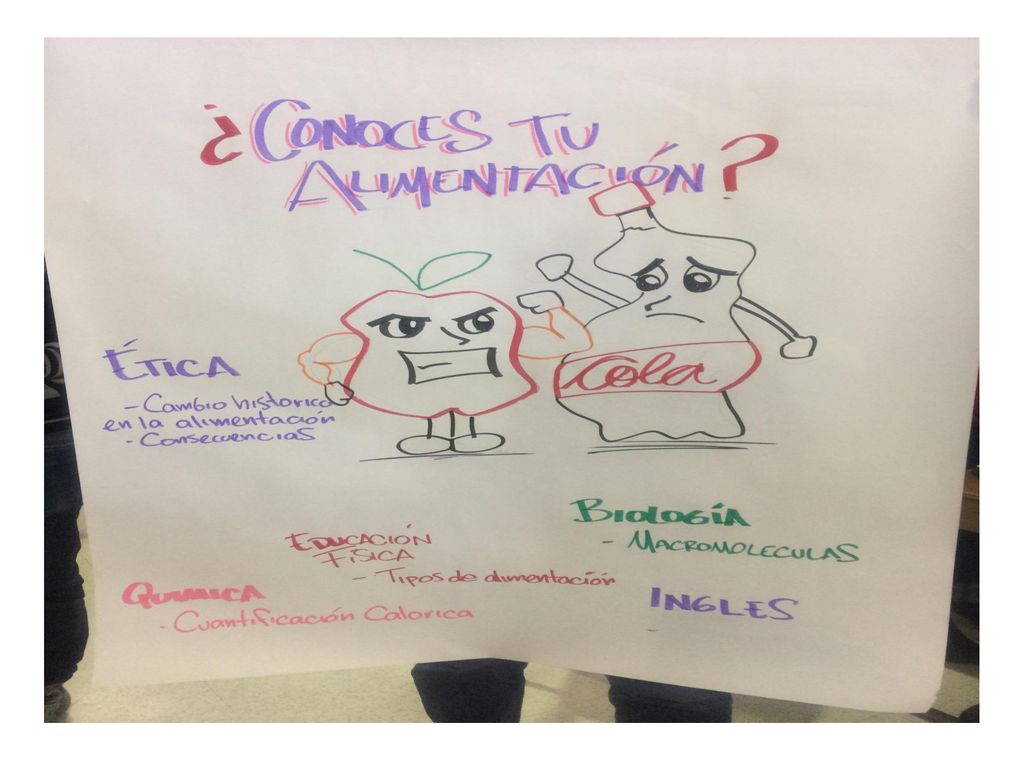 ¿CONOCES TU
ALIMENTACIÓN?
Cola
ÉTICA
- Cambio historico
en la alimentación
- Consecuencias
BIOLOGÍA
- MACROMOLECULAS
EDUCACIÓN
FÍSICA
- Tipos de alimentación
QUIMICA
- Cuantificación Calorica
INGLES
-